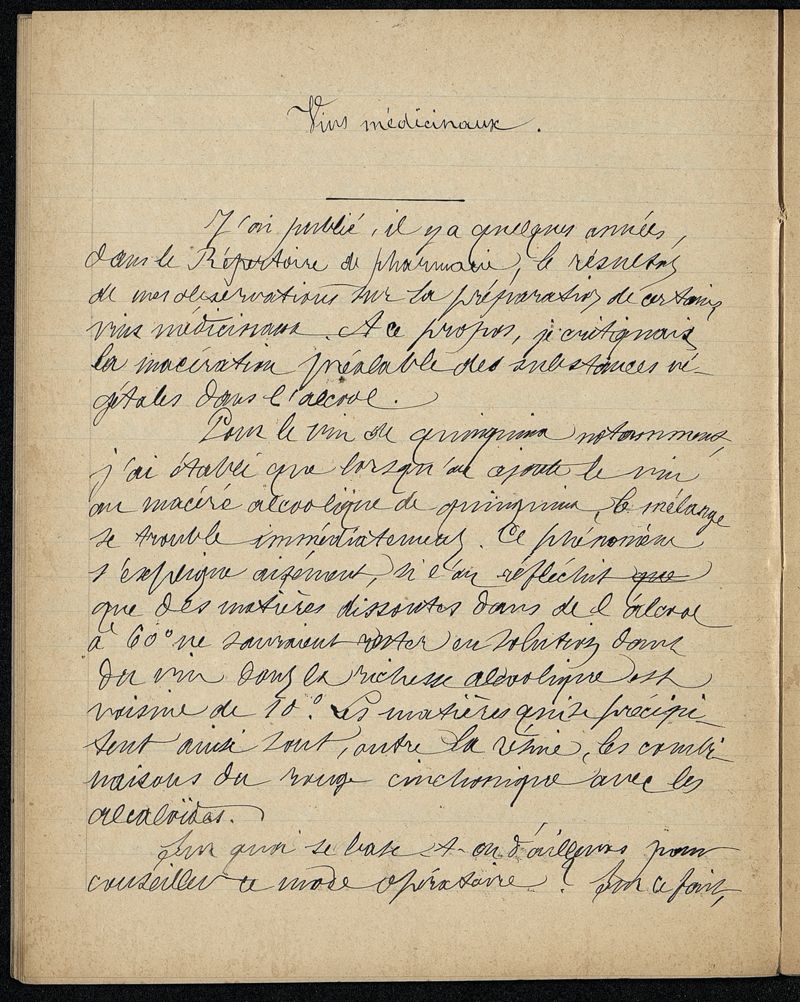 Vins médicinaux.
J'ai publié, il y a quelques années,
dans le Répertoire de pharmacie, le résultat
de mes observations sur la préparation de certains
vins médicinaux. A ce propos, je critiquais
la macération préalable des substances vé-
gétales dans l'alcool.
Pour le vin de quinquina notamment,
j'ai établi que lorsqu'on ajoute le vin
au macéré alcoolique de quinquina, le mélange
se trouble immédiatement. Ce phénomène
s'explique aisément, si l'on réfléchit que
que des matières dissoutes dans de l'alcool
à 60° ne sauraient rester en solution dans
du vin dont la richesse alcoolique est
voisine de 10°. Les matières qui se précipi-
tent ainsi sont, outre la résine, les combi-
naisons du rouge cinchonique avec les
alcaloïdes.
Sur quoi se base-t-on d'ailleurs pour
conseiller ce mode opératoire? Sur ce fait,